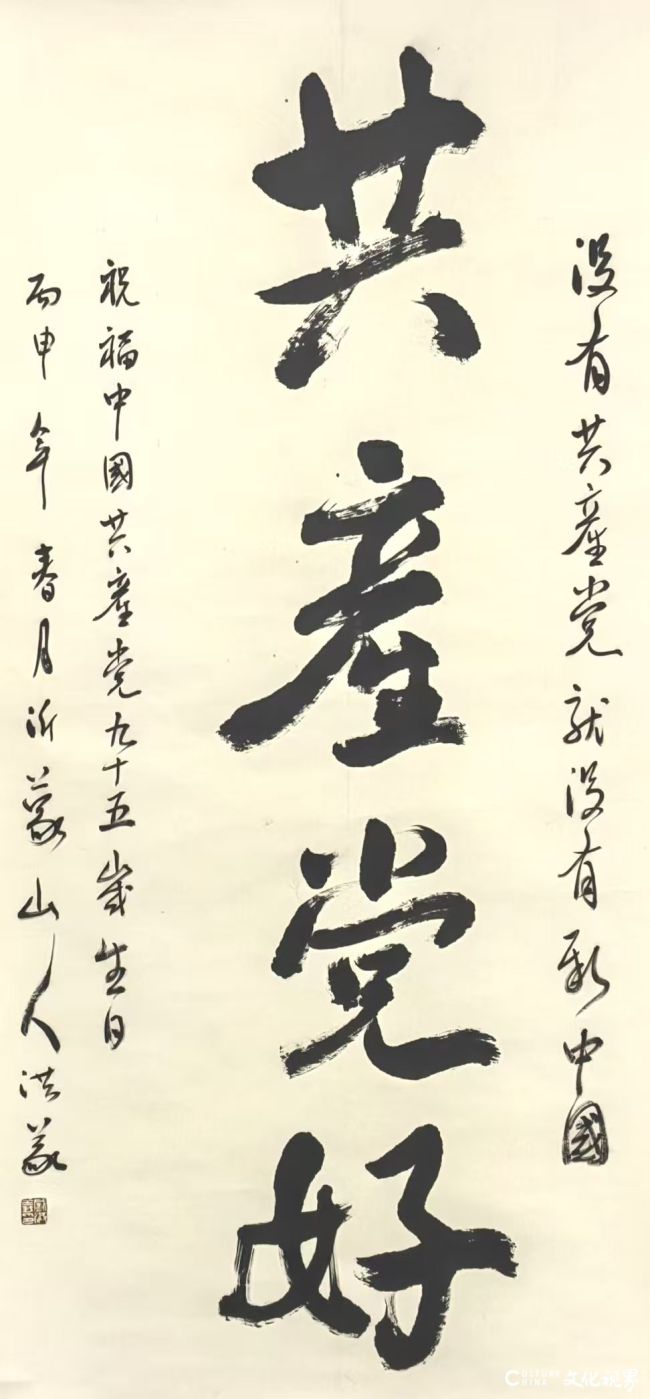 没有共產党就没有新中國
共產党好
祝福中国共產党九十五歲生日
丙申年春月沂蒙山人洪义
CULTURE CHINA 文化视界